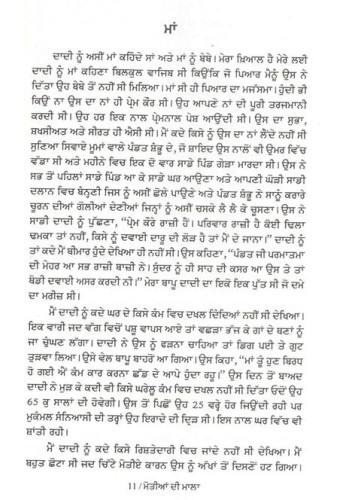 ਮਾਂ
ਦਾਦੀ ਨੂੰ ਅਸੀਂ ਮਾਂ ਕਹਿੰਦੇ ਸਾਂ ਅਤੇ ਮਾਂ ਨੂੰ ਬੇਬੇ। ਮੇਰਾ ਖ਼ਿਆਲ ਹੈ ਮੇਰੇ ਲਈ
ਦਾਦੀ ਨੂੰ ਮਾਂ ਕਹਿਣਾ ਬਿਲਕੁਲ ਵਾਜਿਬ ਸੀ ਕਿਉਂਕਿ ਜੋ ਪਿਆਰ ਮੈਨੂੰ ਉਸ ਨੇ
ਦਿੱਤਾ ਉਹ ਬੇਬੇ ਤੋਂ ਨਹੀਂ ਸੀ ਮਿਲਿਆ। ਮਾਂ ਸੀ ਹੀ ਪਿਆਰ ਦਾ ਮਜੱਸਮਾ। ਹੁੰਦੀ ਭੀ
ਕਿਉਂ ਨਾ ਉਸ ਦਾ ਨਾਂ ਹੀ ਪ੍ਰੇਮ ਕੌਰ ਸੀ। ਉਹ ਆਪਣੇ ਨਾਂ ਦੀ ਪੂਰੀ ਤਰਜਮਾਨੀ
ਕਰਦੀ ਸੀ। ਉਹ ਹਰ ਇਕ ਨਾਲ ਪ੍ਰੇਮਨਾਲ ਪੇਸ਼ ਆਉਂਦੀ ਸੀ। ਉਸ ਦਾ ਸੁਭਾ,
ਸ਼ਖ਼ਸੀਅਤ ਅਤੇ ਸੀਰਤ ਹੀ ਐਸੀ ਸੀ। ਮੈਂ ਕਦੇ ਕਿਸੇ ਨੂੰ ਉਸ ਦਾ ਨਾਂ ਲੈਂਦੇ ਨਹੀਂ ਸੀ
ਸੁਣਿਆ ਸਿਵਾਏ ਮੂਮਾਂ ਵਾਲੇ ਪੰਡਤ ਸ਼ੰਭੂ ਦੇ, ਜੋ ਸ਼ਾਇਦ ਉਸ ਨਾਲੋਂ ਵੀ ਉਮਰ ਵਿੱਚ
ਵੱਡਾ ਸੀ ਅਤੇ ਮਹੀਨੇ ਵਿਚ ਇਕ ਦੋ ਵਾਰ ਸਾਡੇ ਪਿੰਡ ਗੇੜਾ ਮਾਰਦਾ ਸੀ। ਉਸ ਨੇ
ਸਭ ਤੋਂ ਪਹਿਲਾਂ ਸਾਡੇ ਪਿੰਡ ਆ ਕੇ ਸਾਡੇ ਘਰ ਆਉਣਾ ਅਤੇ ਆਪਣੀ ਘੋੜੀ ਸਾਡੀ
ਦਲਾਨ ਵਿਚ ਬੰਨ੍ਹਣੀ ਜਿਸ ਨੂੰ ਅਸੀਂ ਛੋਲੇ ਪਾਉਣੇ ਅਤੇ ਪੰਡਤ ਸ਼ੰਭੂ ਨੇ ਸਾਨੂੰ ਕਰਾਰੇ
ਚੂਰਨ ਦੀਆਂ ਗੋਲੀਆਂ ਦੇਣੀਆਂ ਜਿਨ੍ਹਾਂ ਨੂੰ ਅਸੀਂ ਚਸਕੇ ਲੈ ਲੈ ਕੇ ਚੂਸਣਾ। ਉਸ ਨੇ
ਸਾਡੀ ਦਾਦੀ ਨੂੰ ਪੁੱਛਣਾ, "ਪ੍ਰੇਮ ਕੌਰੇ ਰਾਜ਼ੀ ਹੈਂ। ਪਰਿਵਾਰ ਰਾਜ਼ੀ ਹੈ ਕੋਈ ਢਿਲਾ
ਢਮਕਾ ਤਾਂ ਨਹੀਂ, ਕਿਸੇ ਨੂੰ ਦਵਾਈ ਦਾਰੂ ਦੀ ਲੋੜ ਹੈ ਤਾਂ ਮੈਂ ਦੇ ਜਾਨਾ।" ਦਾਦੀ ਨੂੰ
ਤਾਂ ਕਦੇ ਮੈਂ ਬੀਮਾਰ ਹੁੰਦੇ ਦੇਖਿਆ ਹੀ ਨਹੀਂ ਸੀ। ਉਸ ਕਹਿਣਾ, "ਪੰਡਤ ਜੀ ਪਰਮਾਤਮਾ
ਦੀ ਮੇਹਰ ਆ ਸਭ ਰਾਜ਼ੀ ਬਾਜ਼ੀ ਨੇ। ਸੁੰਦਰ ਨੂੰ ਹੀ ਸਾਹ ਦੀ ਕਸਰ ਆ ਉਸ ਤੇ ਤਾਂ
ਥੋਡੀ ਦਵਾਈ ਅਸਰ ਕਰਦੀ ਨੀ।" ਮੇਰਾ ਬਾਪੂ ਦਾਦੀ ਦਾ ਇਕੋ ਇਕ ਪੁੱਤ ਸੀ ਜੋ ਦਮੇ
ਦਾ ਮਰੀਜ਼ ਸੀ।
ਮੈਂ ਦਾਦੀ ਨੂੰ ਕਦੇ ਘਰ ਦੇ ਕਿਸੇ ਕੰਮ ਵਿਚ ਦਖਲ ਦਿੰਦਿਆਂ ਨਹੀਂ ਸੀ ਦੇਖਿਆ।
ਇਕ ਵਾਰੀ ਜਦ ਵੱਗ ਵਿਚੋਂ ਪਸ਼ੂ ਵਾਪਸ ਆਏ ਤਾਂ ਵਛੜਾ ਭੱਜ ਕੇ ਗਾਂ ਦੇ ਥਣਾਂ ਨੂੰ
ਜਾ ਚੁੰਘਣ ਲੱਗਾ। ਦਾਦੀ ਨੇ ਉਸ ਨੂੰ ਫੜਨਾ ਚਾਹਿਆ ਤਾਂ ਡਿਗ ਪਈ ਤੇ ਗੁਟ
ਤੁੜਵਾ ਲਿਆ। ਉਸੇ ਵੇਲੇ ਬਾਪੂ ਬਾਹਰੋਂ ਆ ਗਿਆ। ਉਸ ਕਿਹਾ, "ਮਾਂ ਤੂੰ ਹੁਣ ਬਿਰਧ
ਹੋ ਗਈ ਐਂ ਕੰਮ ਕਾਰ ਕਰਨਾ ਛੱਡ ਦੇ ਆਪੇ ਹੁੰਦਾ ਰਹੂ।" ਉਸ ਦਿਨ ਤੋਂ ਬਾਅਦ
ਦਾਦੀ ਨੇ ਮੁੜ ਕੇ ਕਦੀ ਵੀ ਕਿਸੇ ਘਰੇਲੂ ਕੰਮ ਵਿਚ ਦਖਲ ਨਹੀਂ ਸੀ ਦਿੱਤਾ ਓਦੋਂ ਉਹ
65 ਕੁ ਸਾਲਾਂ ਦੀ ਹੋਵੇਗੀ। ਉਸ ਤੋਂ ਪਿਛੋਂ ਉਹ 25 ਵਰ੍ਹੇ ਹੋਰ ਜਿਉਂਦੀ ਰਹੀ ਪਰ
ਮੁਕੰਮਲ ਸੰਨਿਆਸੀ ਦੀ ਤਰ੍ਹਾਂ ਉਹ ਇਰਾਦੇ ਦੀ ਦ੍ਰਿੜ ਸੀ। ਇਸ ਨਾਲ ਘਰ ਵਿੱਚ ਵੀ
ਸ਼ਾਂਤੀ ਰਹੀ।
ਮੈਂ ਦਾਦੀ ਨੂੰ ਕਦੇ ਕਿਸੇ ਰਿਸ਼ਤੇਦਾਰੀ ਵਿਚ ਜਾਂਦੇ ਨਹੀਂ ਸੀ ਦੇਖਿਆ। ਮੈਂ
ਬਹੁਤ ਛੋਟਾ ਸੀ ਜਦ ਚਿੱਟੇ ਮੋਤੀਏ ਕਾਰਨ ਉਸ ਨੂੰ ਅੱਖਾਂ ਤੋਂ ਦਿਸਣੋਂ ਹਟ ਗਿਆ।
11 / ਮੋਤੀਆਂ ਦੀ ਮਾਲਾ